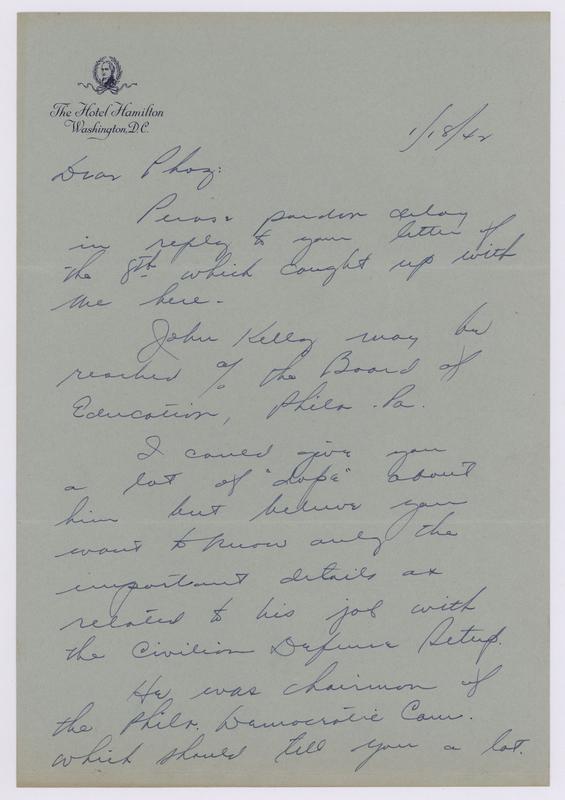 The Hotel Hamilton
Washington, D.C.
1/18/42
Dear Phog:
Please pardon delay
in reply to your letter of
the 8th which caught up with
me here.
John Kelly may be
reached c/o the Board of
Education, Phila. Pa.
I could give you
a lot of "dope" about
him but believe you
want to know only the
important details as
related to his job with
the Civilian Defense Setup.
He was chairman of
the Phila. Democratic Com.
which should tell you a lot.